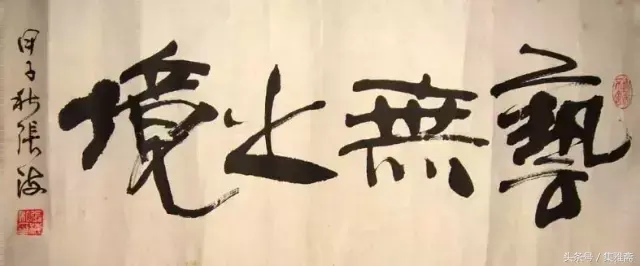 藝無止境
甲子秋張海
头条号/集雅斋